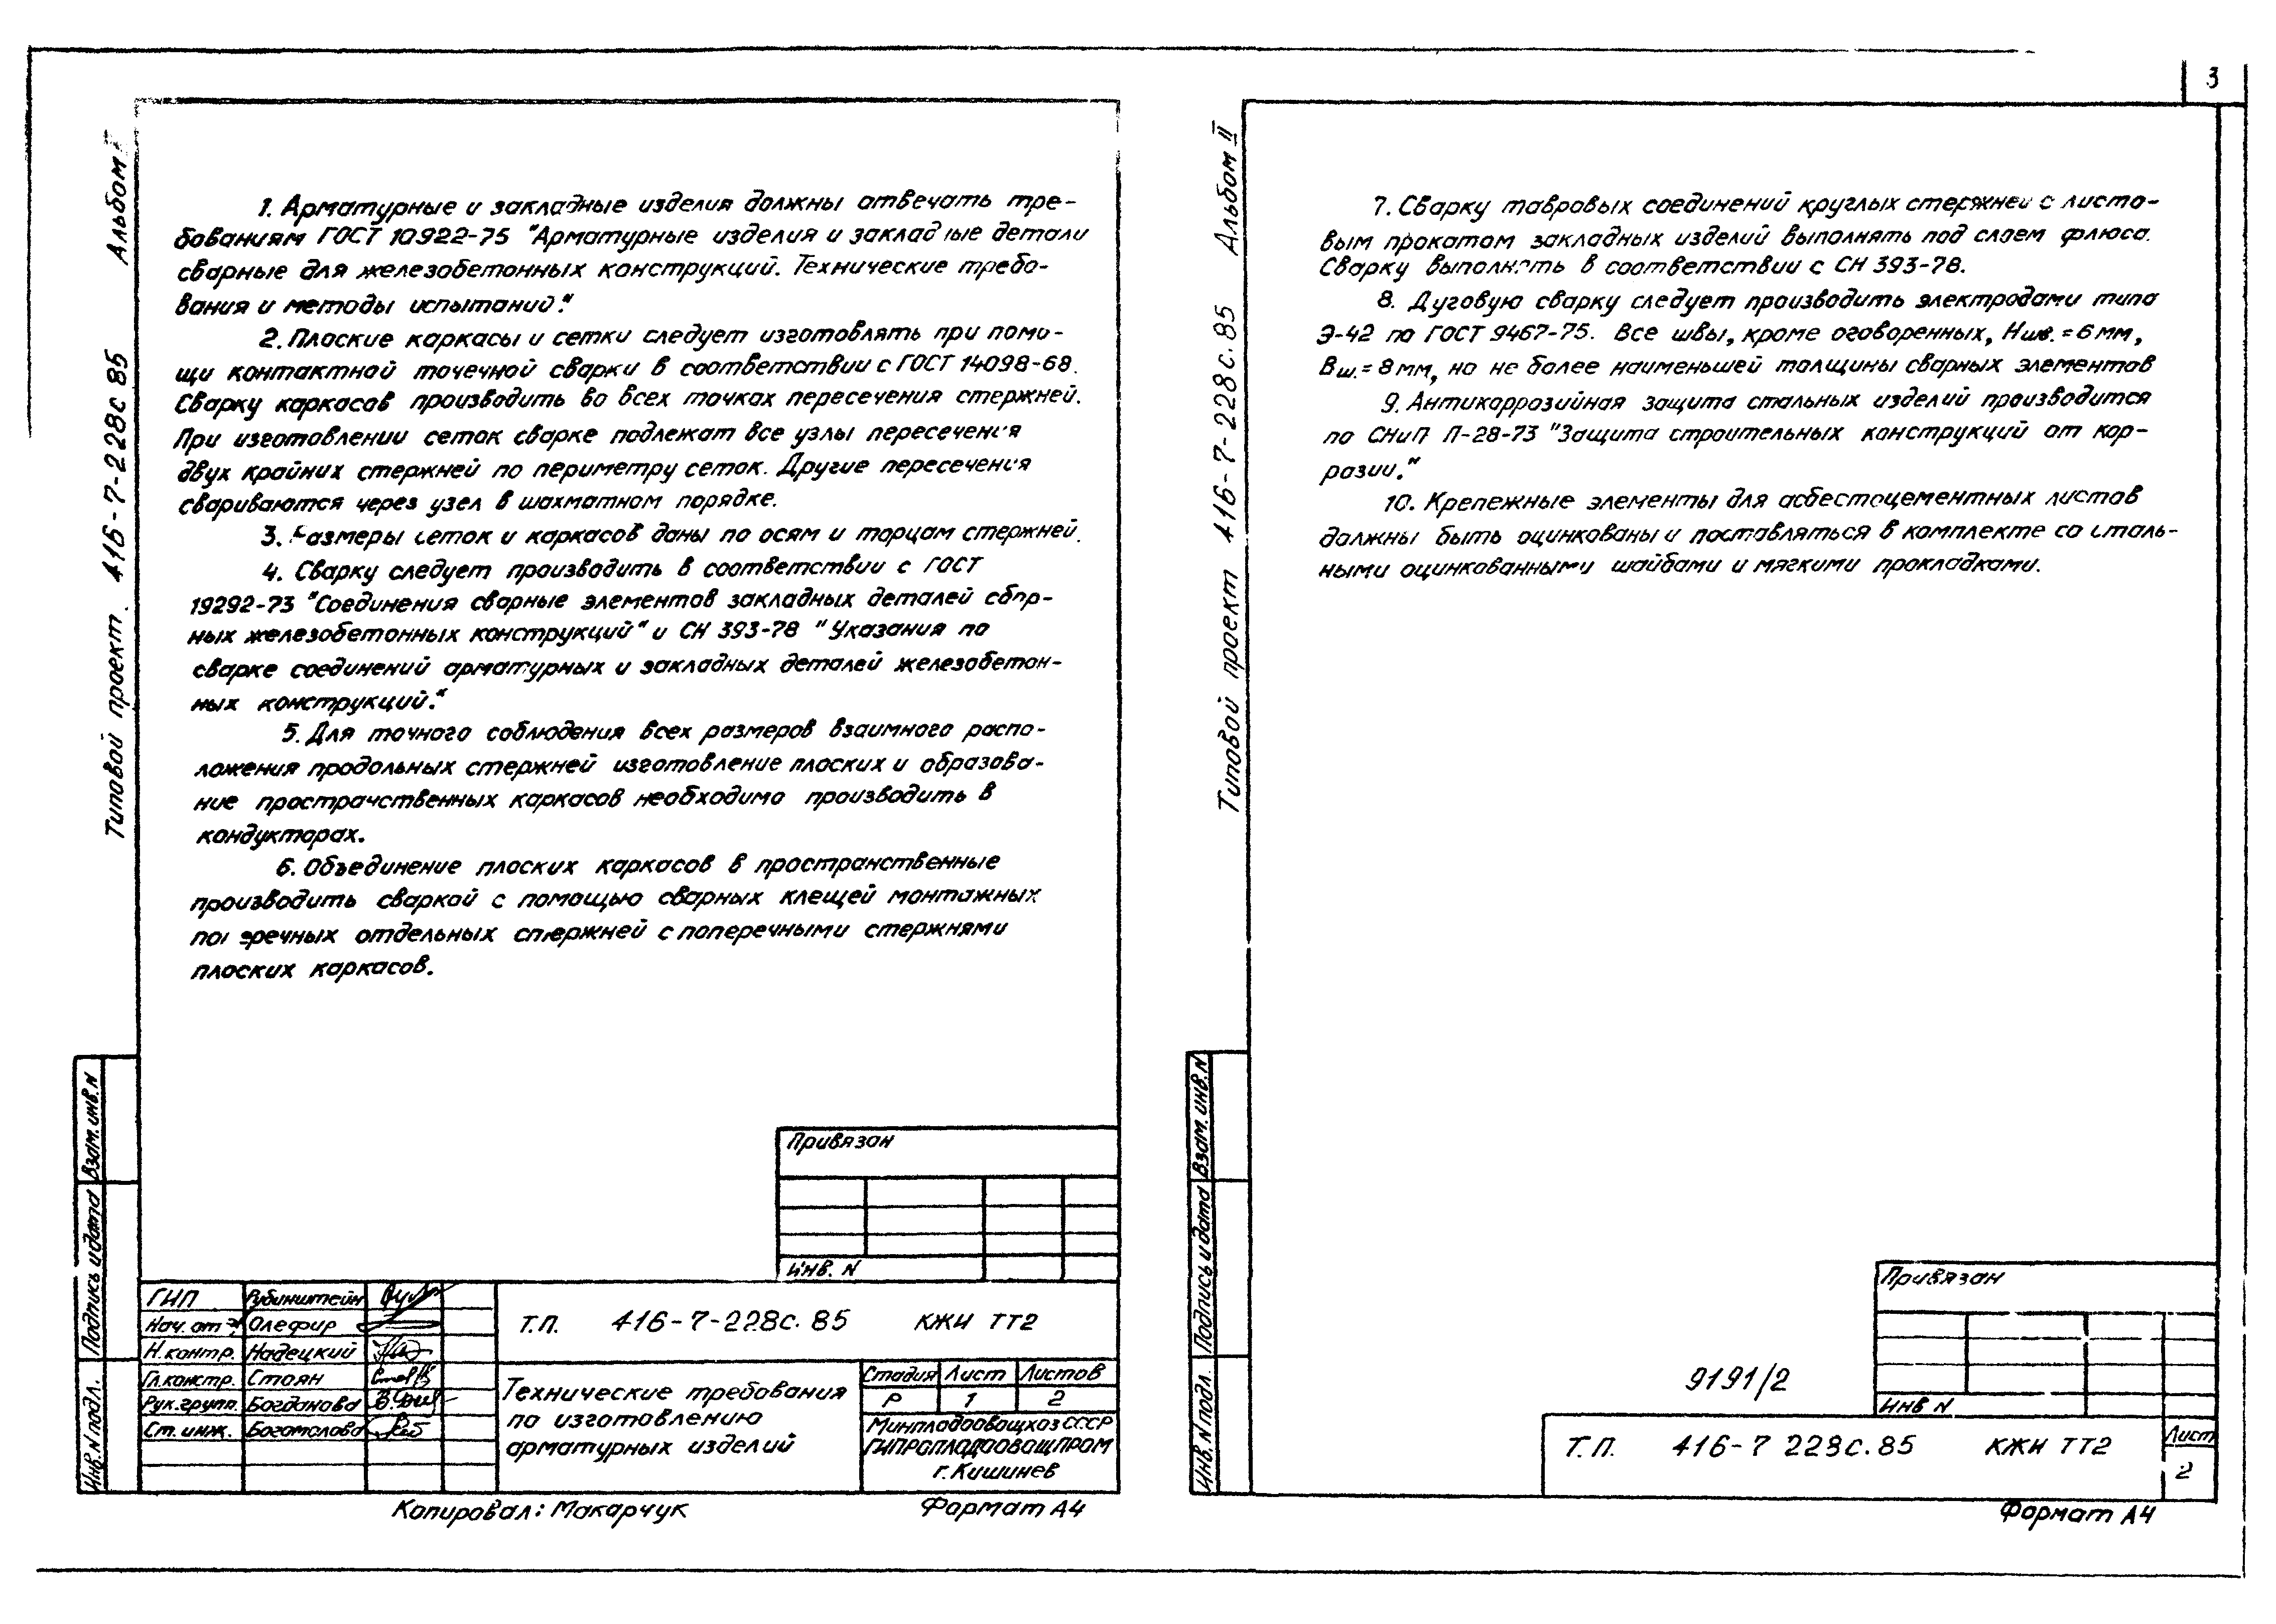 3
Типовой проект 416-7-228с 85 Альбом
1. Арматурные и закладные изделия должны отвечать тре-
бованиям ГОСТ 10922-75 "Арматурные изделия и закладные детали
сварные для железобетонных конструкций. Технические требо-
вания и методы испытаний."
2. Плоские каркасы и сетки следует изготовлять при помо-
щи контактной точечной сварки в соответствии с ГОСТ 14098-68.
Сварку каркасов производить во всех точках пересечения стержней.
При изготовлении сеток сварке подлежат все узлы пересечения
двух крайних стержней по периметру сеток. Другие пересечения
свариваются через узел в шахматном порядке.
3. Размеры сеток и каркасов даны по осям и торцам стержней.
4. Сварку следует производить в соответствии с ГОСТ
19292-73 "Соединения сварные элементов закладных деталей сбор-
ных железобетонных конструкций" и СН 393-78 "Указания по
сварке соединений арматурных и закладных деталей железобетон-
ных конструкций."
5. Для точного соблюдения всех размеров взаимного распо-
ложения продольных стержней изготовление плоских и образова-
ние пространственных каркасов необходимо производить в
кондукторах.
6. Объединение плоских каркасов в пространственные
производить сваркой с помощью сварных клещей монтажных
поперечных отдельных стержней с поперечными стержнями
плоских каркасов.
Привязан
Инв. N
Взам. инв. N
Подпись и дата
Инв. N подл.
ГИП Рубинштейн
Нач. от Олефир
Н. контр. Надецкий
Гл. констр. Стоян
Рук. групп. Богданова
Ст. инж. Богатслова
Т.П. 416-7-228с. 85 КЖИ ТТ2
Технические требования
по изготовлению
арматурных изделий
Стадия Лист Листов
Р 1 2
Минплодоовощхоз СССР
ГИПРОПЛОДООВОЩПРОМ
г. Кишинев
Копировал: Макарчук Формат А4
Типовой проект 416-7-228с. 85 Альбом II
7. Сварку тавровых соединений круглых стержней с листо-
вым прокатом закладных изделий выполнять под слоем флюса.
Сварку выполнять в соответствии с СН 393-78.
8. Дуговую сварку следует производить электродами типа
Э-42 по ГОСТ 9467-75. Все швы, кроме оговоренных, Hшв. = 6 мм,
Bш. = 8 мм, но не более наименьшей толщины сварных элементов
9. Антикоррозийная защита стальных изделий производится
по СНиП II-28-73 "Защита строительных конструкций от кор-
розии."
10. Крепежные элементы для асбестоцементных листов
должны быть оцинкованы и поставляться в комплекте со сталь-
ными оцинкованными шайбами и мягкими прокладками.
Взам. инв. N
Подпись и дата
Инв. N подл.
Привязан
Инв N
9191/2
Т.П. 416-7 228с. 85 КЖИ ТТ2
Лист
2
Формат А4